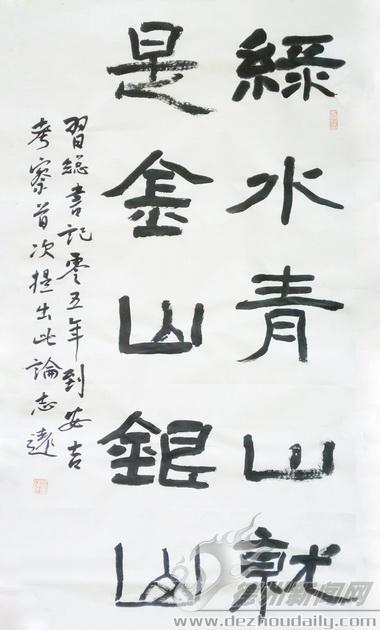 綠水青山就
是金山銀山
習總書記零五年到安吉
考察首次提出此論志遠
德州新闻网
www.dezhoudaily.com